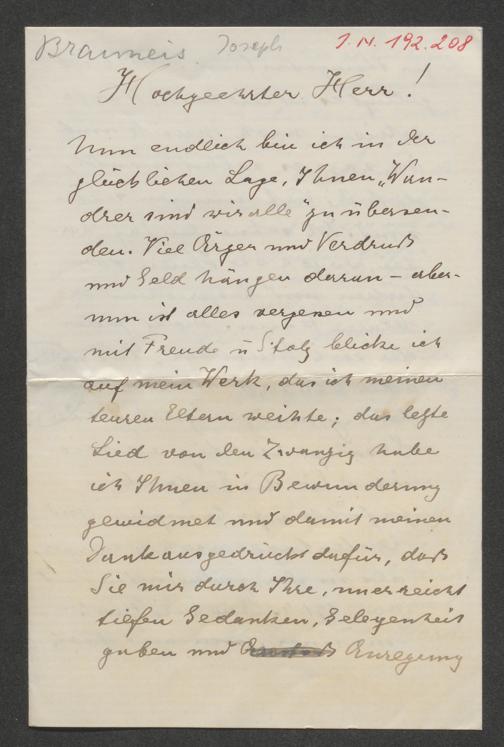 Brauneis. Joseph I.N. 192.208
Hochgeehrter Herr!
Nun endlich bin ich in der
glücklichen Lage, Ihnen „Wan-
drer sind wir alle" zu übersen-
den. Viel Ärger und Verdruß
und Geld hängen daran – aber
nun ist alles vergessen und
mit Freude u Stolz blicke ich
auf mein Werk, das ich meinen
teuren Eltern weihte; das letzte
Lied von den Zwanzig habe
ich Ihnen in Bewunderung
gewidmet und damit meinen
Dank ausgedrückt dafür, daß
Sie mir durch Ihre, unerreicht
tiefen Gedanken, Gelegenheit
gaben und Anregung